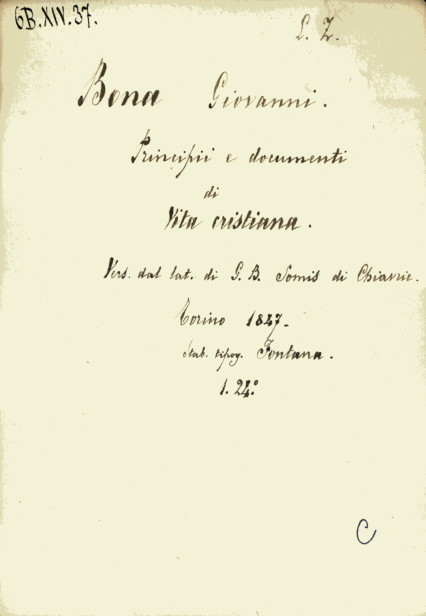 6B.XIV.37.
L. Z.
Bona Giovanni.
Principii e documenti
di
Vita cristiana.
Vers. dal lat. di G. B. Somis di Chiavrie.
Torino 1847-
Stab. tipog. Fontana.
1. 24:º
C